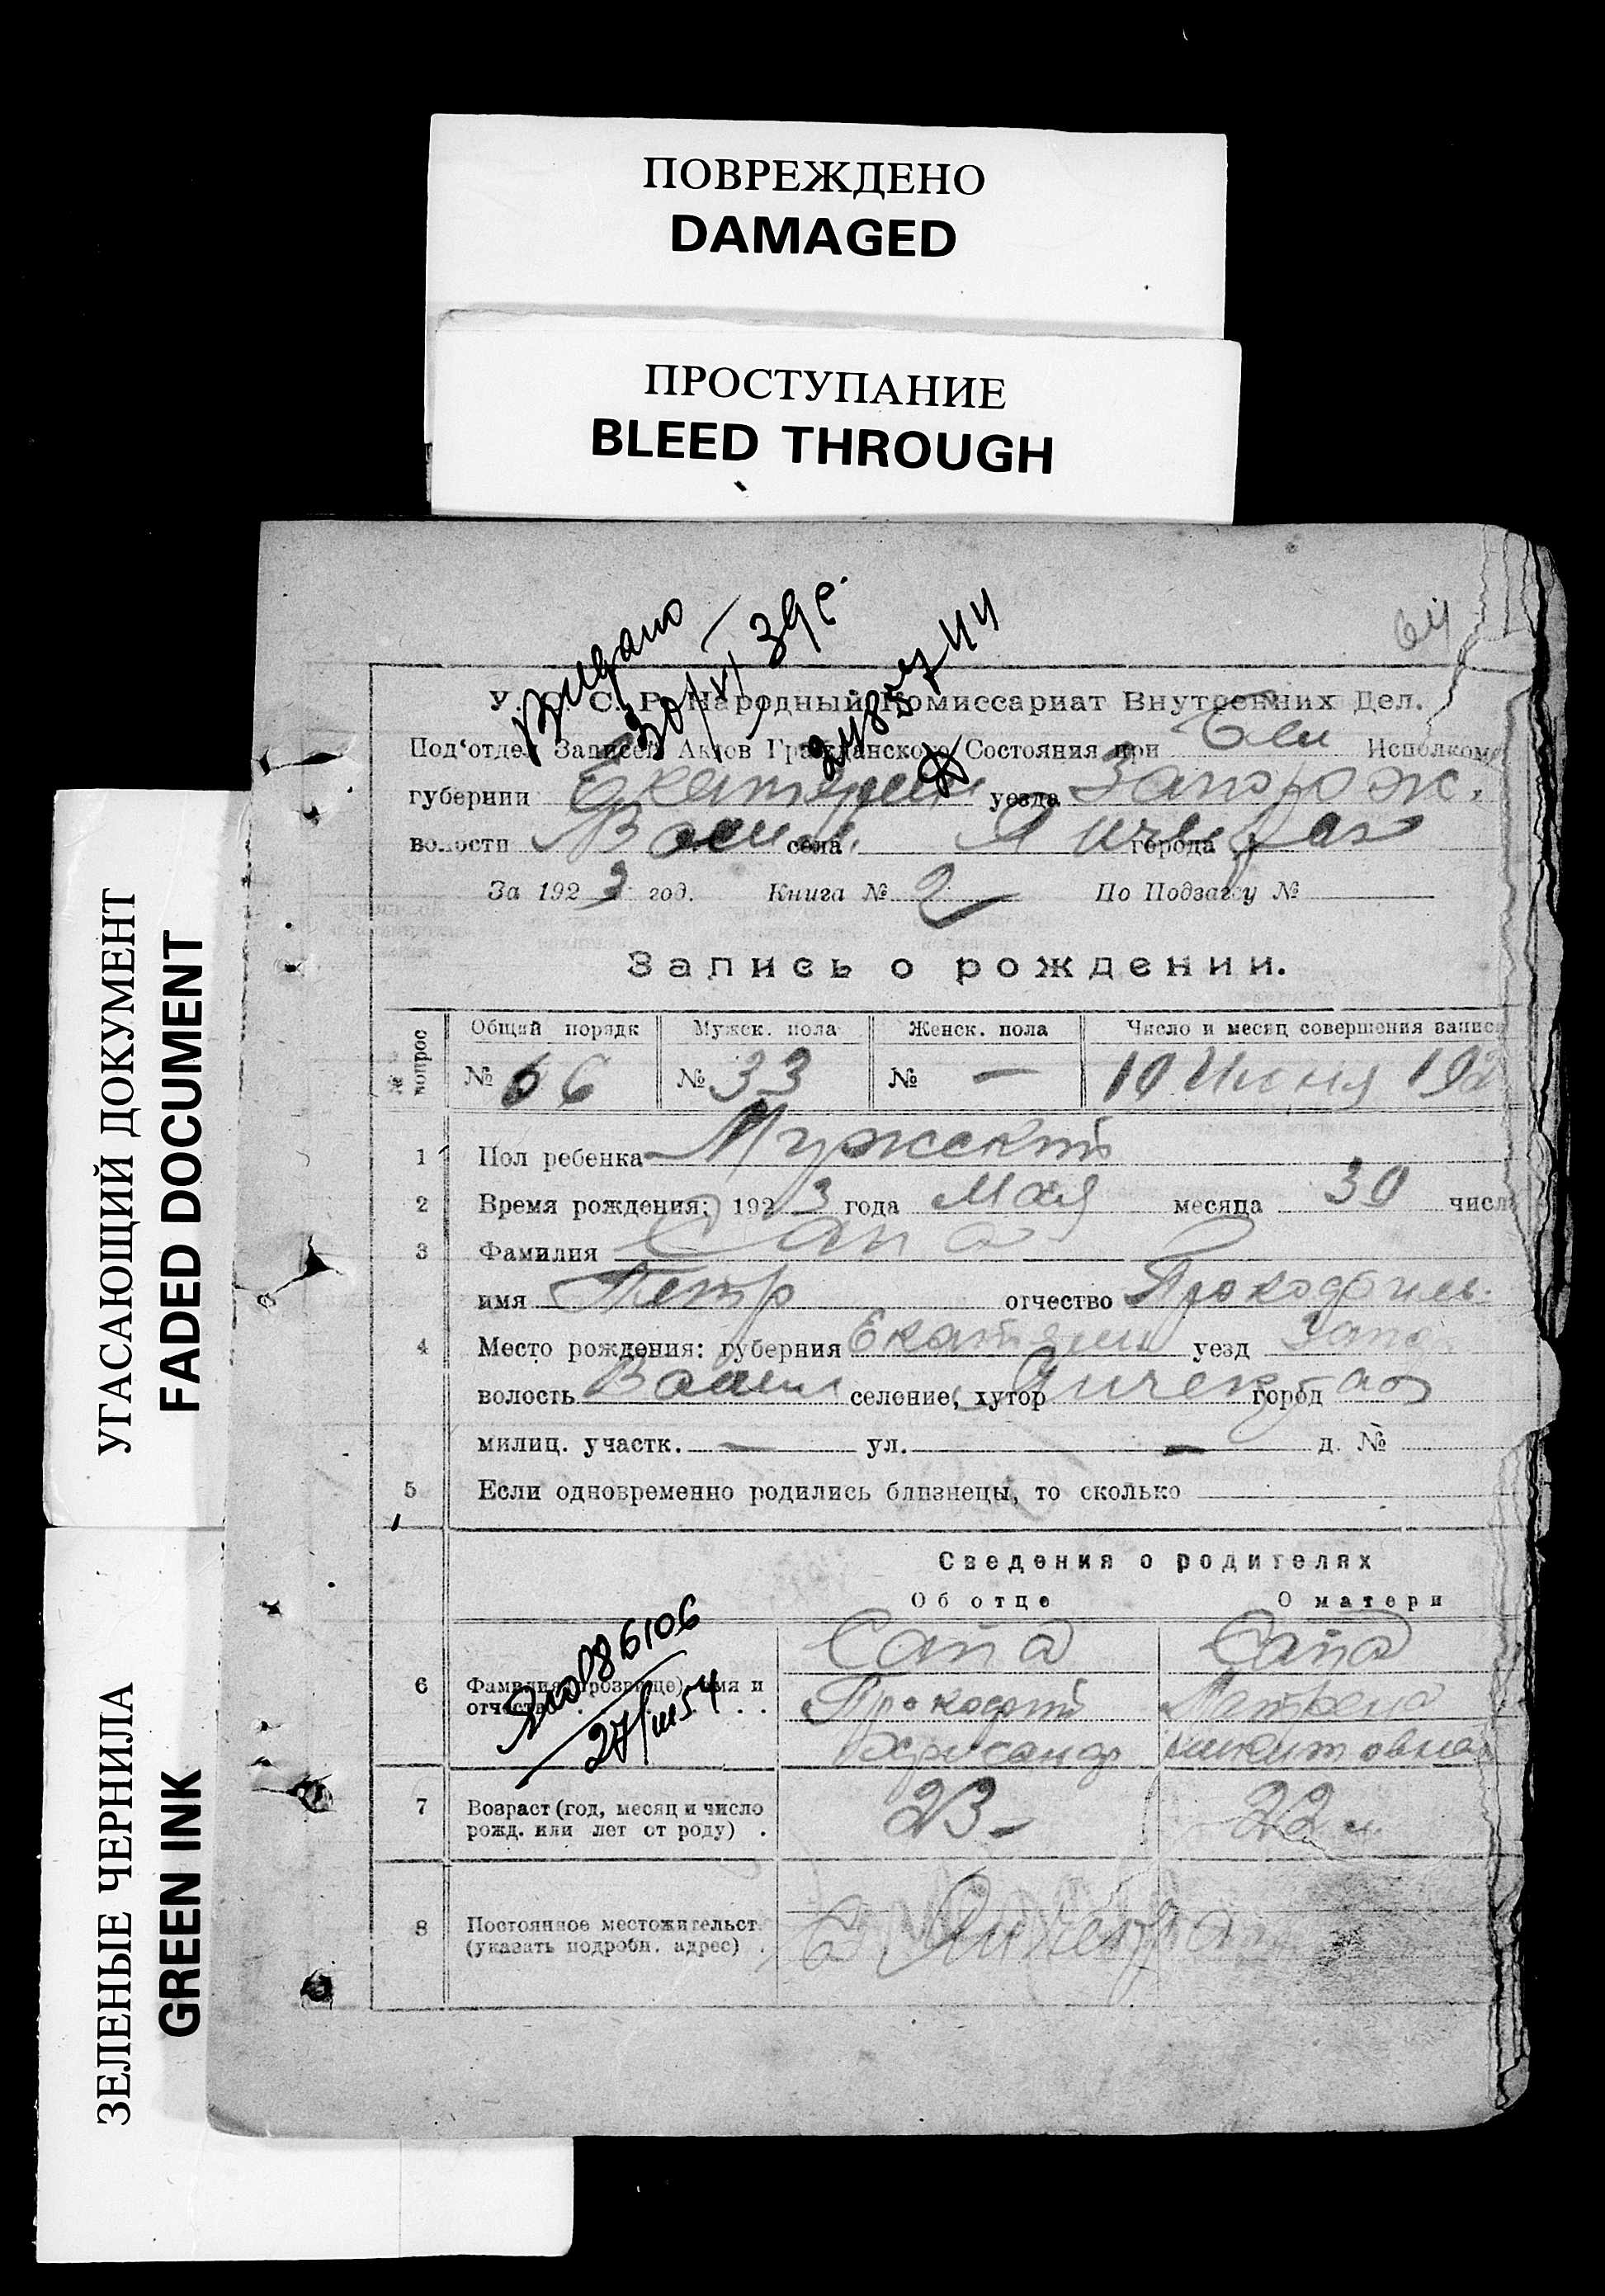 ПОВРЕЖДЕНО
DAMAGED
ПРОСТУПАНИЕ
BLEED THROUGH
УГАСАЮЩИЙ ДОКУМЕНТ
FADED DOCUMENT
ЗЕЛЕНЫЕ ЧЕРНИЛА
GREEN INK
64
Видано
30/VI 39 р.
У. С. С. Р. Народный Комиссариат Внутренних Дел.
Под'отдел Записей Актов Гражданского Состояния при Исполкоме
губернии Екатерин уезда Запорож.
волости Васил. села города
За 1923 год. Книга № 2 По Подзагсу №
Запись о рождении.
№ вопрос
Общий порядк Мужск. пола Женск. пола Число и месяц совершения записи
№ 66 № 33 № — 10 Июня 192
1 Пол ребенка Мужской
2 Время рождения: 1923 года Мая месяца 30 числа
3 Фамилия Сапа
имя Петр отчество Прокофиев.
4 Место рождения: губерния Екатерин уезд Запор
волость Васил селение, хутор город
милиц. участк. — ул. — д. №
5 Если одновременно родились близнецы, то сколько
Сведения о родителях
Об отце О матери
6 Фамилия (прозвище), имя и отчество
Сапа Сапа
Прокофий Матрена
Хрисанф Никитовна
86106
27/III 54
7 Возраст (год, месяц и число рожд. или лет от роду) .
23 — 22
8 Постоянное местожительст. (указать подробн. адрес) .